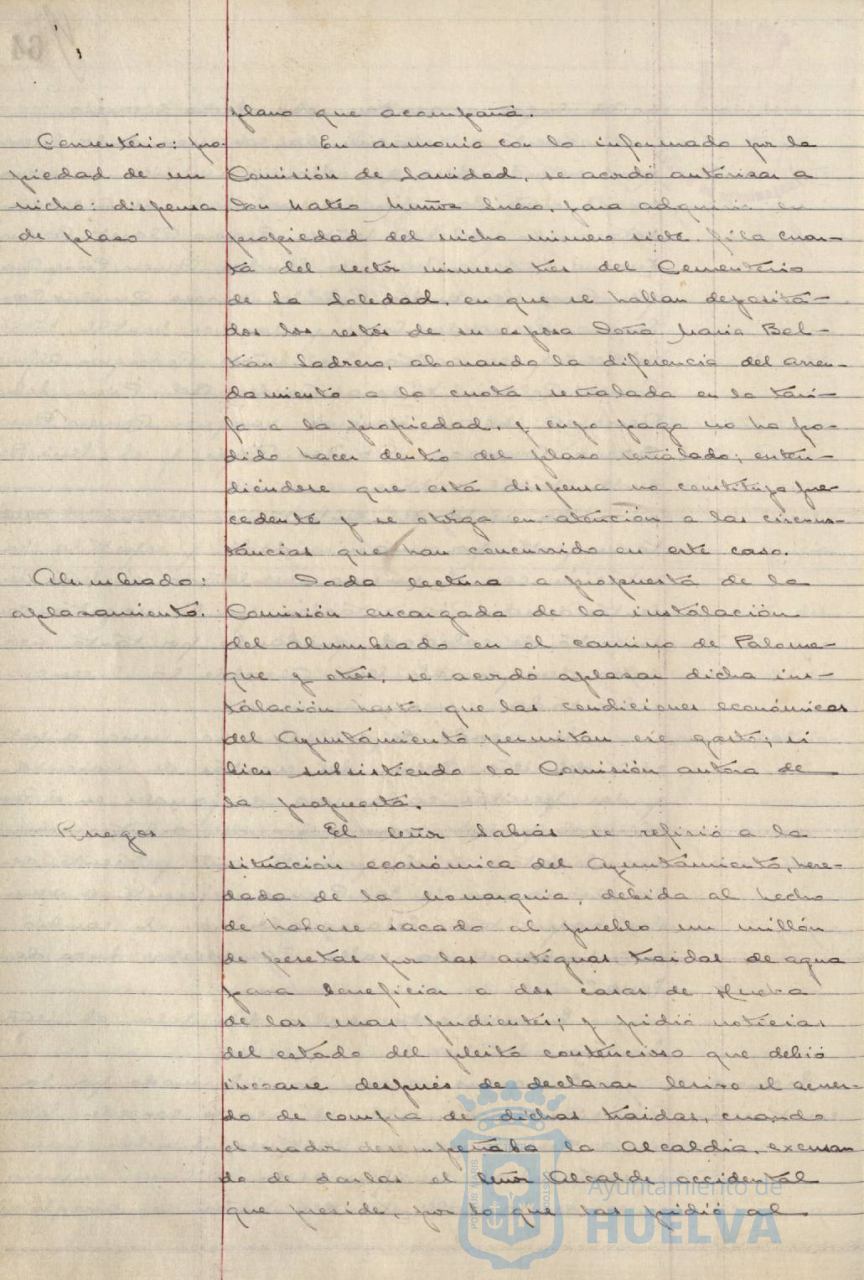 plano que acompaña.
Cementerio: pro-
piedad de un
nicho: dispensa
de plazo
En armonia con lo informado por la
Comisión de Sanidad, se acordó autorizar a
Don Mateo Muñoz Suero, para adquirir en
propiedad del nicho número siete fila cuar-
ta del sector número tres del Cementerio
de la Soledad, en que se hallan deposita-
dos los restos de su esposa Doña Maria Bel-
trán Ladrero, abonando la diferencia del arren-
damiento a la cuota señalada en la tari-
fa a la propiedad, y cuyo pago no ha po-
dido hacer dentro del plazo señalado; enten-
diéndose que esta dispensa no constituye pre-
cedente y se otorga en atención a las circuns-
tancias que han concurrido en este caso.
Alumbrado:
aplazamiento.
Dada lectura a propuesta de la
Comisión encargada de la instalación
del alumbrado en el camino de Palome-
que y otros, se acordó aplazar dicha ins-
talación hasta que las condiciones económicas
del Ayuntamiento permitan ese gasto; si
bien subsistiendo la Comisión autora de
la propuesta.
Ruegos
El Señor Sabrás se refirió a la
situación económica del Ayuntamiento, here-
dada de la Monarquia, debida al hecho
de haberse sacado al pueblo un millón
de pesetas por las antiguas traidas de agua
para beneficiar a dos casas de Huelva
de las mas pudientes; y pidió noticias
del estado del pleito contencioso que debió
incoarse después de declarar lesivo el acuer-
do de compra de dichas traidas, cuando
el orador desempeñaba la Alcaldia, excusan
do de darlas el Señor Alcalde accidental
que preside, por lo que las pidió al
Ayuntamiento de
HUELVA